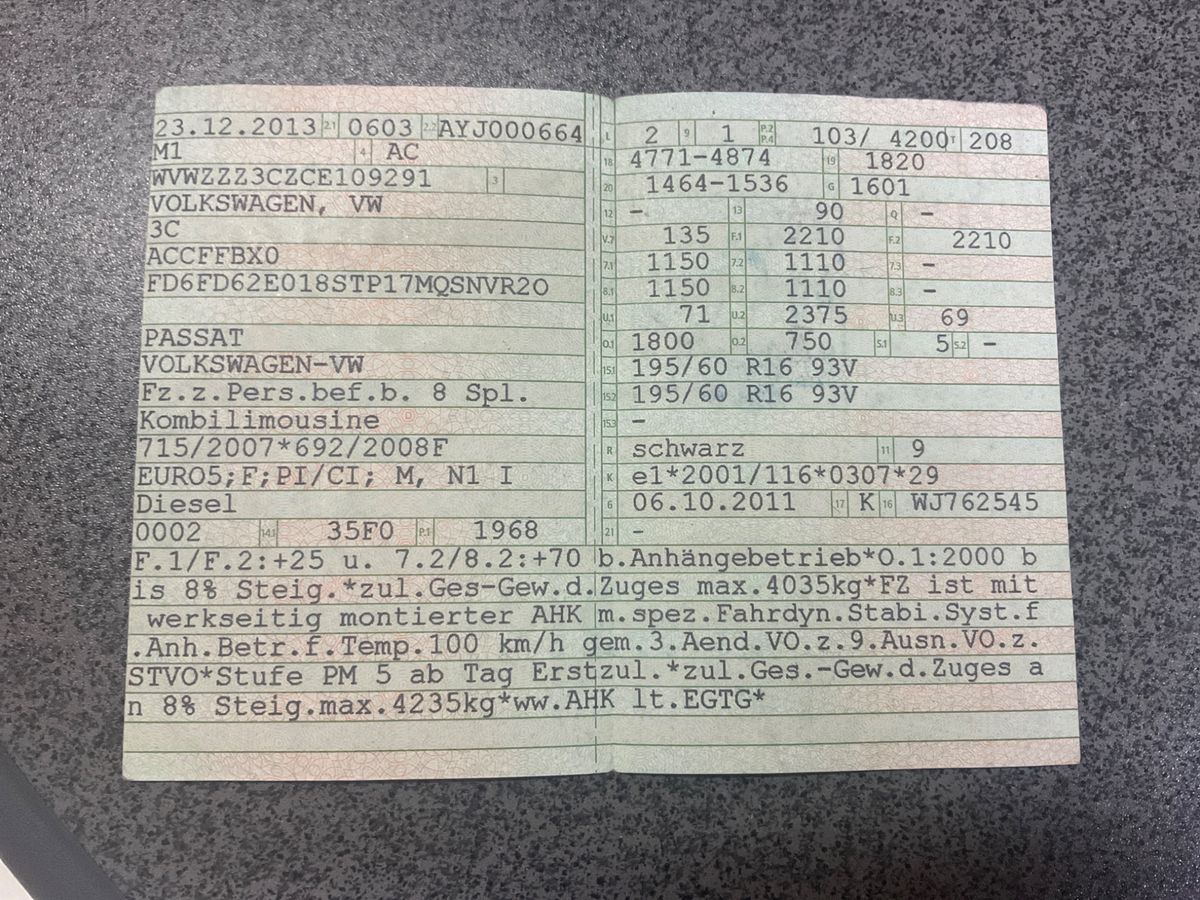 23.12.2013 2.1 0603 2.2 AYJ000664
M1 4 AC
WVWZZZ3CZCE109291 3
VOLKSWAGEN, VW
3C
ACCFFBX0
FD6FD62E018STP17MQSNVR2O
PASSAT
VOLKSWAGEN-VW
Fz.z.Pers.bef.b. 8 Spl.
Kombilimousine
715/2007*692/2008F
EURO5;F;PI/CI; M, N1 I
Diesel
0002 14.1 35F0 P.1 1968
L 2 9 1 P.2 P.4 103/ 4200 T 208
18 4771-4874 19 1820
20 1464-1536 G 1601
12 – 13 90 Q –
V.7 135 F.1 2210 F.2 2210
7.1 1150 7.2 1110 7.3 –
8.1 1150 8.2 1110 8.3 –
U.1 71 U.2 2375 U.3 69
O.1 1800 O.2 750 S.1 5 S.2 –
15.1 195/60 R16 93V
15.2 195/60 R16 93V
15.3 –
R schwarz 11 9
K e1*2001/116*0307*29
6 06.10.2011 17 K 16 WJ762545
21 –
F.1/F.2:+25 u. 7.2/8.2:+70 b.Anhängebetrieb*O.1:2000 b
is 8% Steig.*zul.Ges-Gew.d.Zuges max.4035kg*FZ ist mit
werkseitig montierter AHK m.spez.Fahrdyn.Stabi.Syst.f
.Anh.Betr.f.Temp.100 km/h gem.3.Aend.VO.z.9.Ausn.VO.z.
STVO*Stufe PM 5 ab Tag Erstzul.*zul.Ges.-Gew.d.Zuges a
n 8% Steig.max.4235kg*ww.AHK lt.EGTG*